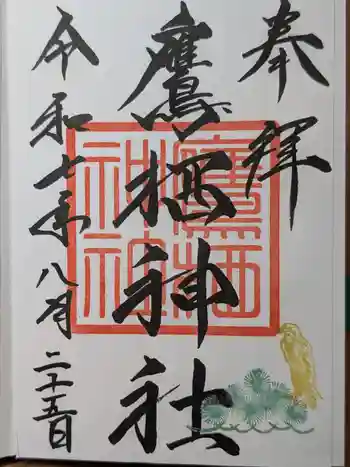 奉拝
鷹栖神社
令和七年八月二十五日
鷹栖神社